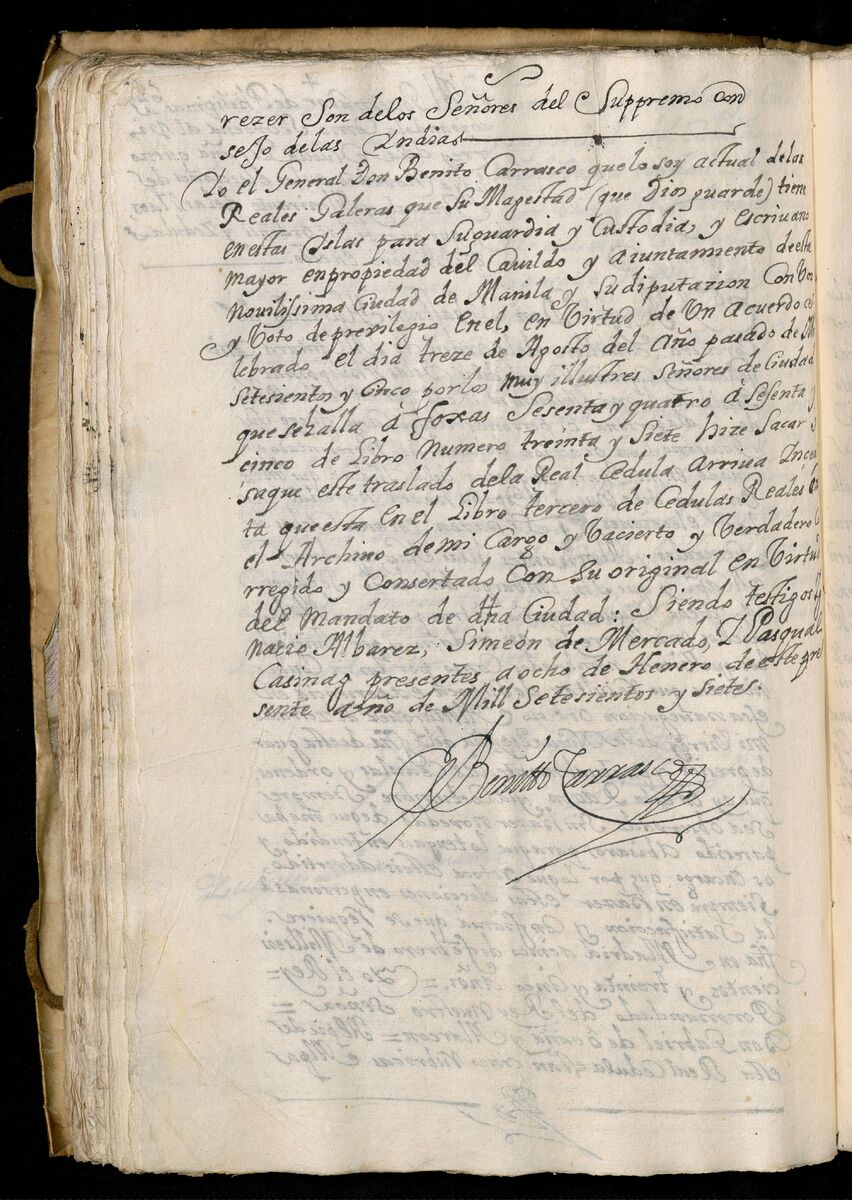 rezer Son delos Señores del Suppremo Con
sejo delas Yndias
Yo el General Don Benito Carrasco que lo soy actual de las
Reales Galeras que Su Magestad (que Dios guarde) tiene
en estas Yslas para Suguardia y Custodia, y Escrivano
mayor en propiedad del Cavildo y Aiuntamiento de esta
Novilissima Ciudad de Manila y Sudiputazion Con Voz
y Voto de previlegio En el, En Virtud de Un Acuerdo ce
lebrado el dia treze de Agosto del Año pasado de
Setesientos y Cinco por los muy illustres Señores de Ciudad
que se halla â foxas Sesenta y quatro â Sesenta y
cinco de Libro Numero treinta y Siete hize Sacar y
saque este traslado dela Real Cedula Arriva Incer
ta que esta En el Libro tercero de Cedulas Reales
el Archivo de mi Cargo y Vacierto y Verdadero Co
rregido y Consertado Con Su original En Virtud
del Mandato de dha Ciudad: Siendo testigos Yg
nacio Albarez, Simeón de Mercado, Y Pasqual
Casinag presentes a ocho de Henero de este pre
sente año de Mill Setesientos y Siete.
Benitto Carrasco